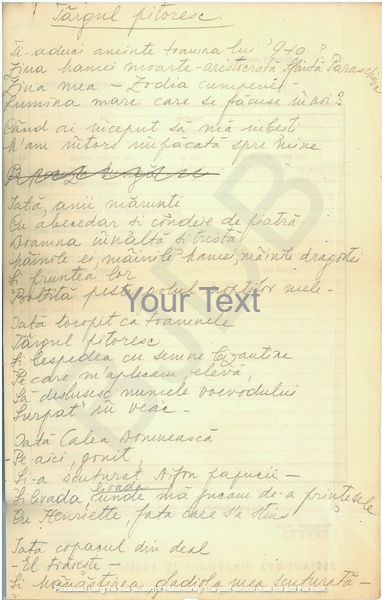 Târgul pitoresc
Ti-aduci aminte toamna lui 940?
Ziua mamei moarte - aristocrată Sfânta Paraschiva
Ziua mea - Zodia cumpenei
Lumina mare care se făcuse în noi?
Când ai început să mă iubești
M'am întors împăcată spre mine
Iată, anii mărunți
Cu abecedar și condeie de piatră
Doamna înaltă și tristă
Mâinile ei, mâinile mamei, mâinile dragostei
Și fruntea lor
Boltită peste
mele -
Your Text
Iată toropit ca toamnele
Târgul pitoresc
Și lespedea cu semne bizantine
Pe care m'aplecam, elevă,
Să deslușesc numele voevodului
Surpat în veac -
Iată Calea Domnească
- Pe aici, gonit,
Și-a scuturat
papucii -
Livada
Și unde mă jucam de-a prințesele
Cu Henriette - fata care s'a stins
Iată copacul din deal
- El trăiește -
Și Mânăstirea, gladiola mea scuturată -